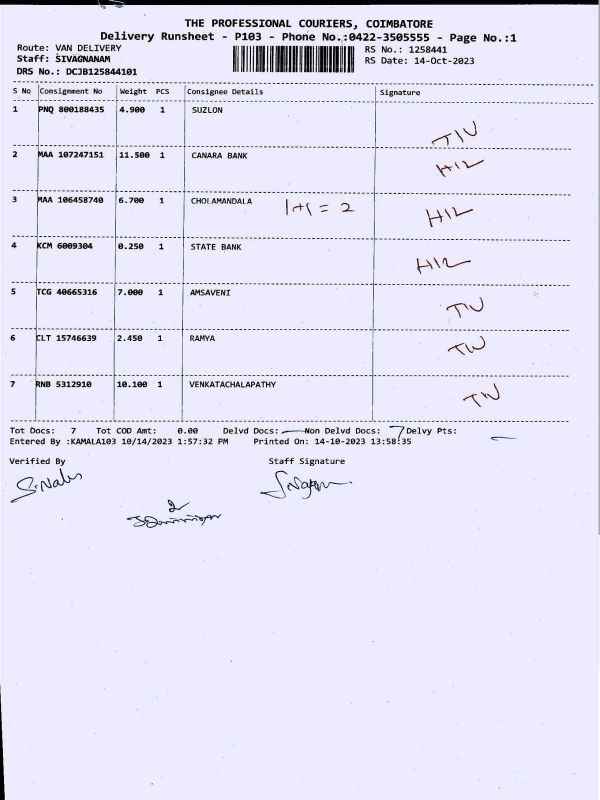 THE PROFESSIONAL COURIERS, COIMBATORE
Delivery Runsheet - P103 - Phone No.:0422-3505555 - Page No.:1
Route: VAN DELIVERY RS No.: 1258441
Staff: SIVAGNANAM RS Date: 14-Oct-2023
DRS No.: DCJB125844101
S No Consignment No Weight PCS Consignee Details Signature
1 PNQ 800188435 4.900 1 SUZLON
TIN
2 MAA 107247151 11.500 1 CANARA BANK HIL
3 MAA 106458740 6.700 1 CHOLAMANDALA 1+1 = 2 HIL
4 KCM 6009304 0.250 1 STATE BANK
HIL
5 TCG 40665316 7.000 1 AMSAVENI
TW
6 CLT 15746639 2.450 1 RAMYA TW
7 RNB 5312910 10.100 1 VENKATACHALAPATHY TW
Tot Docs: 7 Tot COD Amt: 0.00 Delvd Docs: Non Delvd Docs: 7 Delvy Pts:
Entered By :KAMALA103 10/14/2023 1:57:32 PM Printed On: 14-10-2023 13:58:35
Verified By Staff Signature